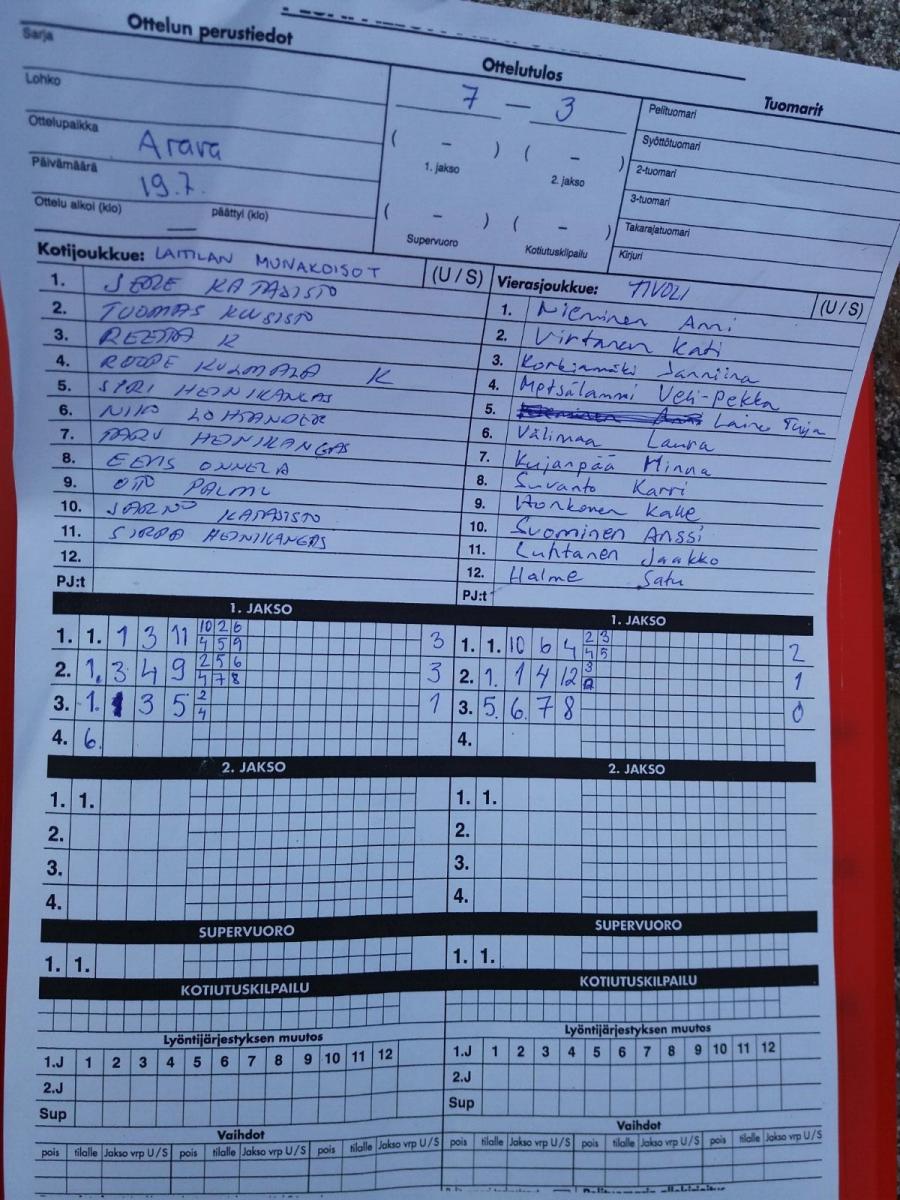 Ottelun perustiedot
Sarja
Lohko
Ottelupaikka Arava
Päivämäärä 19.7.
Ottelu alkoi (klo) — päättyi (klo)
Ottelutulos
7 — 3
( – ) ( – )
1. jakso 2. jakso
( – ) ( – )
Supervuoro Kotiutuskilpailu
Tuomarit
Pelituomari
Syöttötuomari
2-tuomari
3-tuomari
Takarajatuomari
Kirjuri
Kotijoukkue: LAITILAN MUNAKOISOT (U / S)
1. JERE KATAJISTO
2. TUOMAS KUUSISTO
3. REETTA K
4. ROOPE KULMALA K
5. SIRI HEINIKANGAS
6. NIKO LOHSANDER
7. PARU HEINIKANGAS
8. EETIS ONNELA
9. OTTO PALMU
10. JARNO KATAJISTO
11. SIRPA HEINIKANGAS
12.
PJ:t
Vierasjoukkue: TIVOLI (U / S)
1. Nieminen Anni
2. Virtanen Kati
3. Korkiamäki Janniina
4. Metsälammi Veli-Pekka
5. Laine Tuija
6. Välimaa Laura
7. Kujanpää Minna
8. Suvanto Karri
9. Honkonen Kalle
10. Suominen Anssi
11. Luhtanen Jaakko
12. Halme Satu
PJ:t
1. JAKSO
1. 1. 1 3 11 10 2 6 3
4 5 9
2. 1. 3 4 9 2 5 6 3
4 7 8
3. 1. 3 5 2 1
4
4. 6.
1. JAKSO
1. 1. 10 6 4 2 3 2
4 5
2. 1. 1 4 12 3 1
3. 5. 6. 7 8 0
4.
2. JAKSO
1. 1.
2.
3.
4.
2. JAKSO
1. 1.
2.
3.
4.
SUPERVUORO
1. 1.
SUPERVUORO
1. 1.
KOTIUTUSKILPAILU
KOTIUTUSKILPAILU
Lyöntijärjestyksen muutos
1.J 1 2 3 4 5 6 7 8 9 10 11 12
2.J
Sup
Lyöntijärjestyksen muutos
1.J 1 2 3 4 5 6 7 8 9 10 11 12
2.J
Sup
Vaihdot
pois tilalle Jakso vrp U / S pois tilalle Jakso vrp U / S pois tilalle Jakso vrp U / S
Vaihdot
pois tilalle Jakso vrp U / S pois tilalle Jakso vrp U / S pois tilalle Jakso vrp U / S